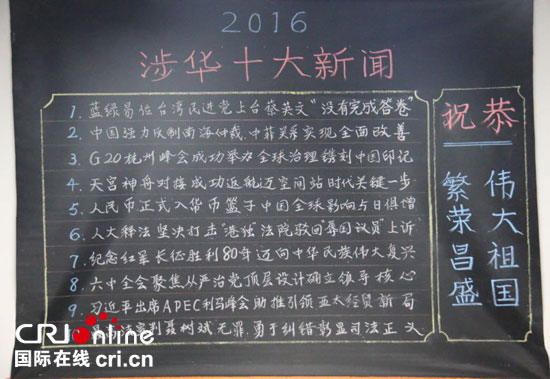 2016
涉华十大新闻
1. 蓝绿易位台湾民进党上台蔡英文“没有完成答卷”
2. 中国强力反制南海仲裁,中菲关系实现全面改善
3. G20杭州峰会成功举办全球治理镌刻中国印记
4. 天宫神舟对接成功返航迈空间站时代关键一步
5. 人民币正式入货币篮子中国全球影响与日俱增
6. 人大释法坚决打击“港独”法院驳回“辱国议员”上诉
7. 纪念红军长征胜利80年迈向中华民族伟大复兴
8. 六中全会聚焦从严治党顶层设计确立领导核心
9. 习近平出席APEC利马峰会助推引领亚太经贸新局
判聂树斌无罪,勇于纠错彰显司法正义
恭祝
伟大祖国
繁荣昌盛
CRIonline
国际在线 cri.cn